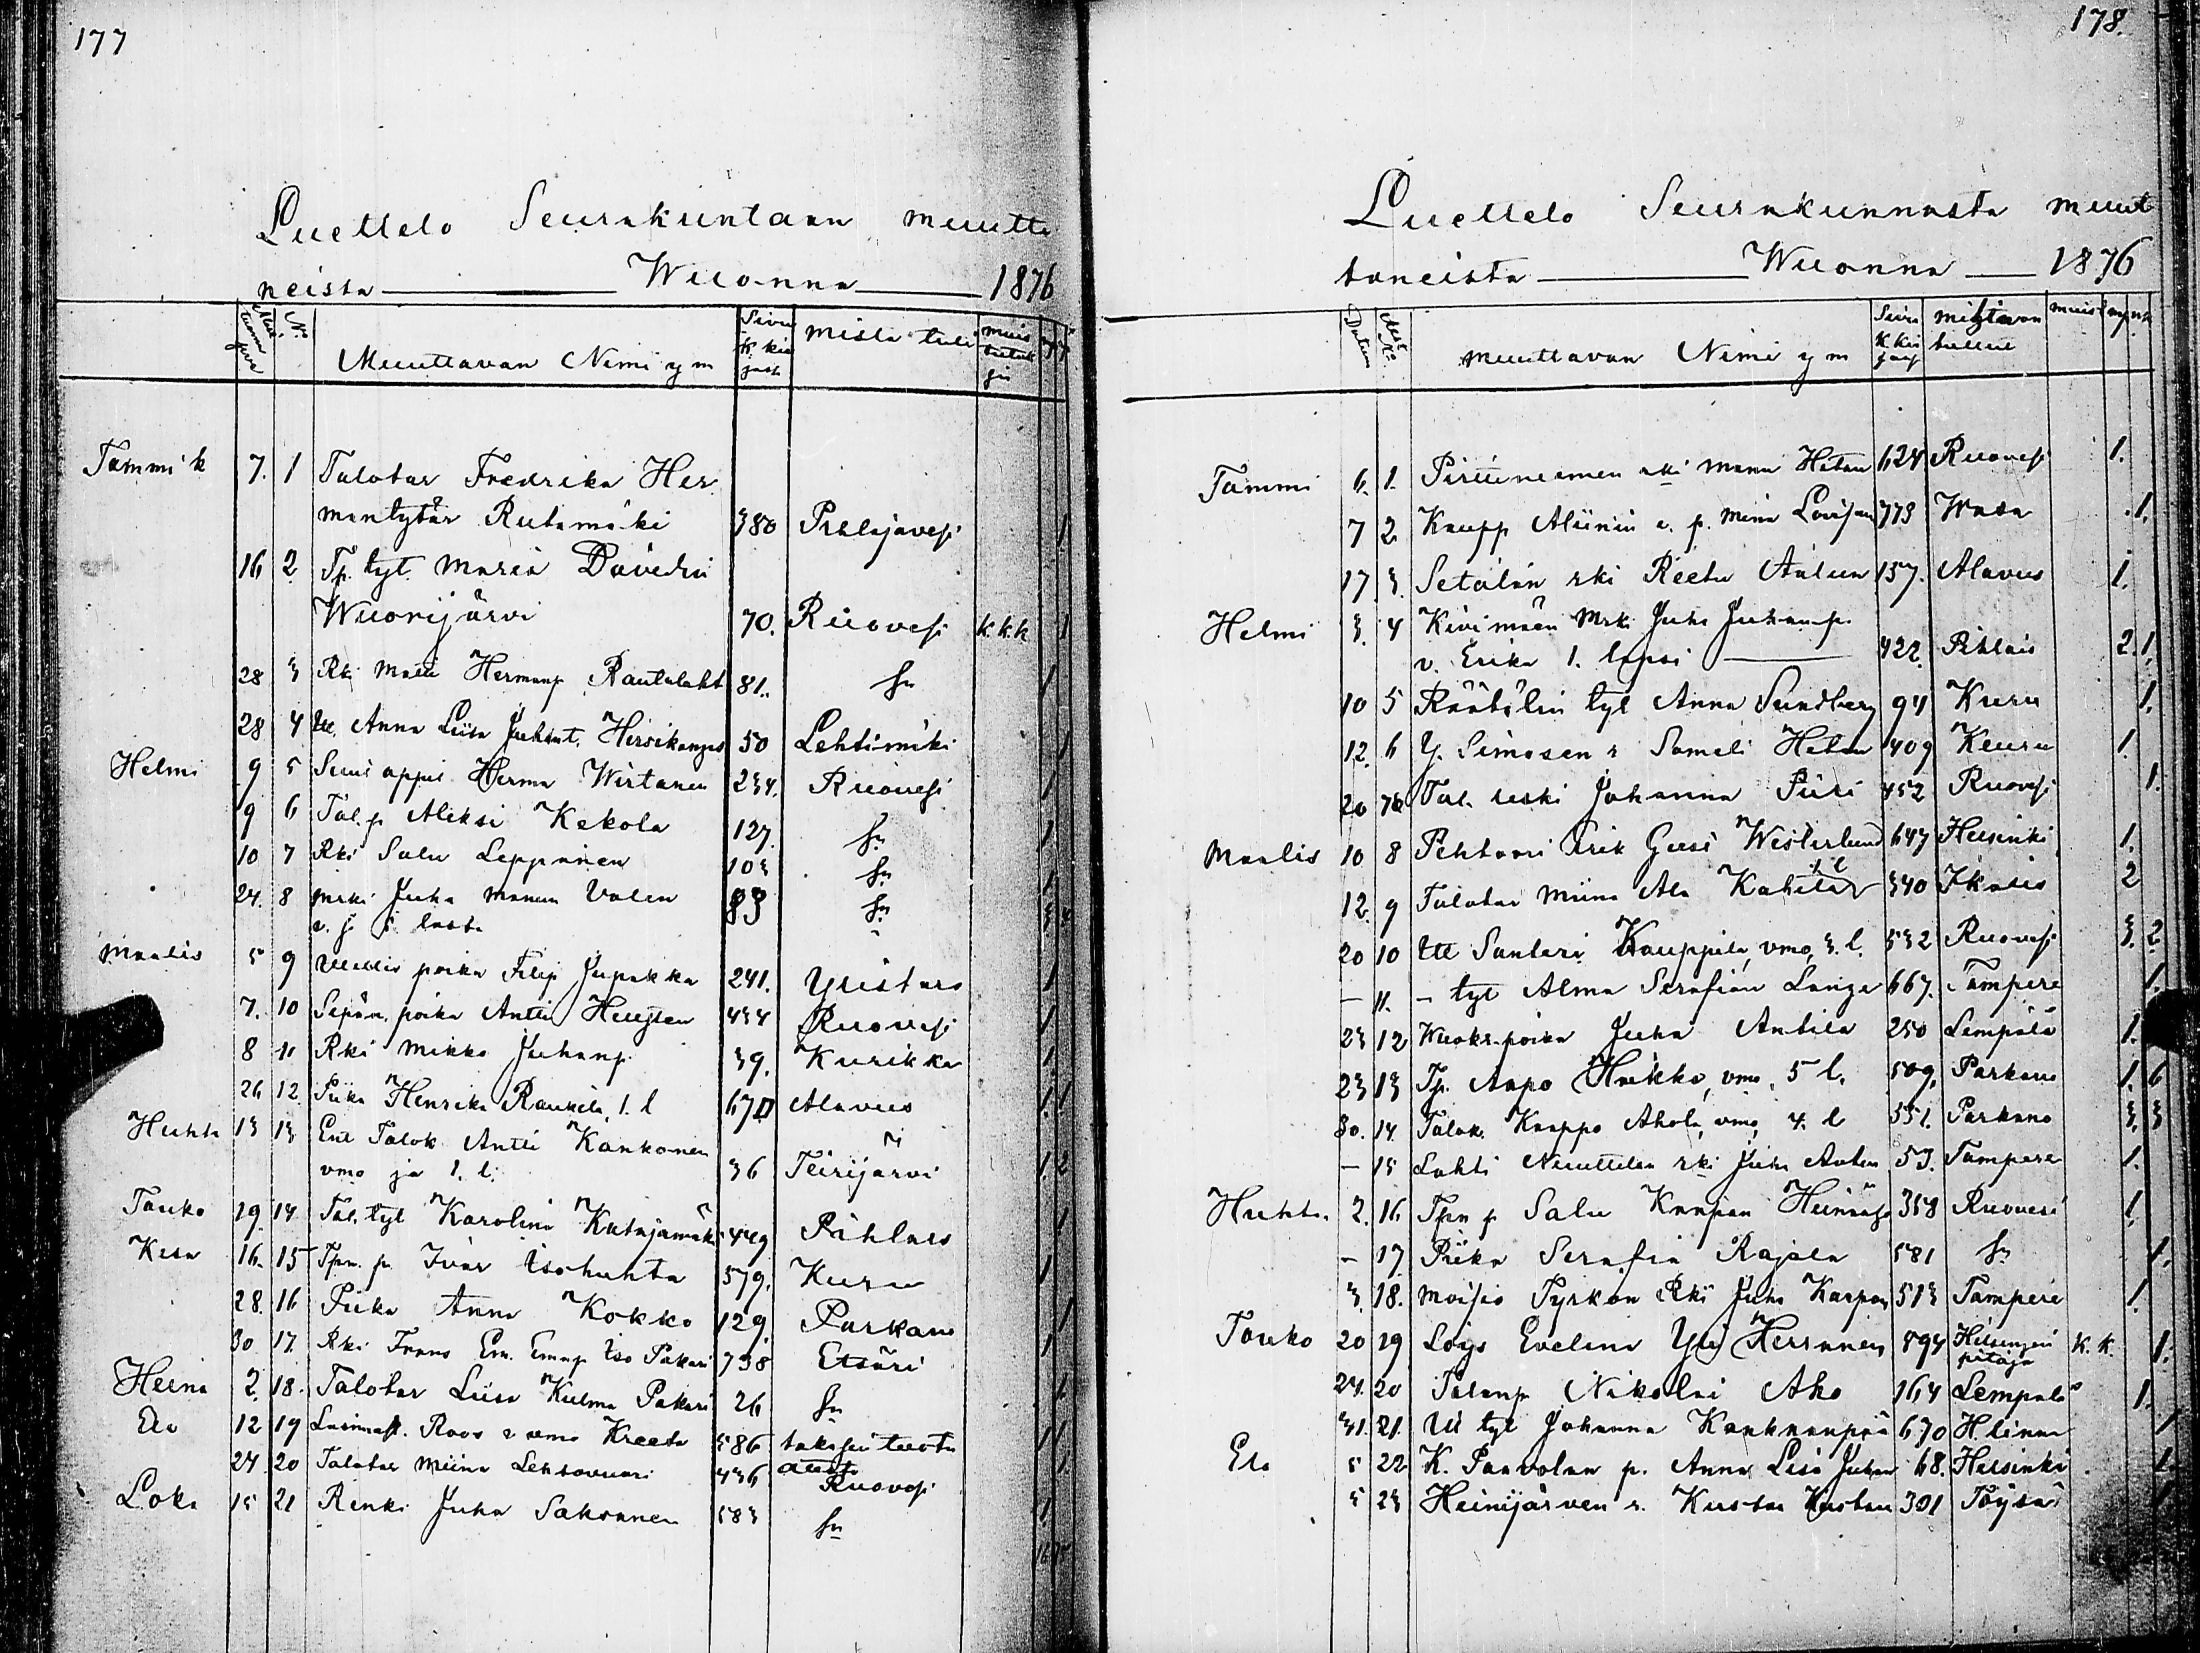 177
Luettelo Seurakuntaan muutta
neista Wuonna 1876
N:o Muuttavan Nimi y m Sivu K. kirjast mista tuli muistutuksia
Tammik 7. 1 Talotar Fredrika Her
mantytär Rutamäki 380 Pihlajavesi 1
16 2 Tp. tyt. Maria Davidin
Wuorijärvi 70. Ruovesi k.k.k 1
28 3 Rki Matti Hermanp Rautalaht 81. sn 1
28 4 Itt. Anna Liisa Juhant. Hirsikangas 50 Lehtimäki 1
Helmi 9 5 Herman Wirtanen 234. Ruovesi 1
9 6 Tal.p Aleksi Kekola 127. sn 1
10 7 Rki Salu Leppänen 103 sn 1
24. 8 Mrki Juha Manun Valen 83 sn
v. j lasta
Maalis 5 9 poika Filip Jupakka 241. Ylistaro 1
7. 10 Sepän poika Antti 434 Ruovesi 1
8 11 Rki Mikko Juhanp 39. Kurikka 1.
26 12. Piika Henrika Raukela, 1. l 670 Alavus 1. 1
Huhti 13 13 Ent Talok Antti Kankonen
vmo ja 1. l. 36 Teirijärvi 1. 2
Touko 19. 14 Tal. tyt Karolina Katajamäki 449 Pihlais 1.
Kesä 16. 15 Tpn. p Ivar Isohuhta 579. Kuru 1
28. 16 Piika Anna Kokko 129. Parkano 1
30 17. Rki Frans Em. Emanp Iso Pakari 738 Etsäri 1
Heinä 2. 18. Talotar Liisa Kulma Pakari 26 sn 1.
Elo 12 19 Roos v vmo Kreeta 586 takasi tuotu 1 1
24. 20 Talotar Miina Lehtovuori 436 Ruovesi 1.
Loka 15 21 Renki Juha Saksanen 583 sn 1.
178.
Luettelo Seurakunnasta muut
taneista Wuonna 1876
Datum N:o muuttavan Nimi y m Sivu K.kirjas muist
Tammi 6. 1. rki Manu Heten 624 Ruovesi 1.
7 2 Kaupp Aliinin e. p. Mina Lovisan 773 Wasa 1.
17 3. Setälän rki Reetu Aatun 157. Alavus 1.
Helmi 3. 4 Kivimäen Mrki Juha Juhanp.
v. Erika 1. lapsi 422. Pihlais 2. 1.
10 5 Räätälin tyt Anna Sundberg 94 Kuru 1.
12. 6 Y. Simosen r Sameli Heten 409 Keuru 1.
20 7 Tal. leski Johanna Piiri 452 Ruovesi 1.
Maalis 10 8 Pehtori Erik Gust Westerlund 647 Helsinki 1.
12. 9 Talotar Miina Ala Kahila 1 l 340 Ikalis 2
20 10 Itt Santeri Kauppila, vmo, 3. l. 532 Ruovesi 3. 2
— 11. – tyt Alma Serafian Lange 667. Tampere 1.
23 12 Wuokr. poika Juha Antila 250 Lempälä 1.
23 13 Tp. Aapo Heikko, vmo. 5 l. 509. Parkano 1. 6
30. 14. Talok. Kaappo Ahola, vmo, 4. l 551. Parkano 3. 3
— 15 Lahti Neuttelan rki Juha Anten 53. Tampere 1.
Huhti. 2. 16 Tpn p Salu Kaapan Heinäaho 358 Ruovesi 1.
— 17. Piika Serafia Rajala 581 sn 1.
3. 18. Moisio Pyrkön Rki Juha Karpon 513 Tampere 1.
Touko 20 19 Löys Evelina Yli Herranen 894 Helsingin
pitäjä k. k. 1.
24. 20 Talonp Nikolai Aho 164 Lempälä 1.
31. 21. Itt tyt Johanna Kankaanpää 670 H. linna 1
Elo 5 22 K. Paavolan p. Anna Lisa Juhan 68. Helsinki 1.
5 23 Heinijärven r. Kustaa Kustaan 301 Töysä 1